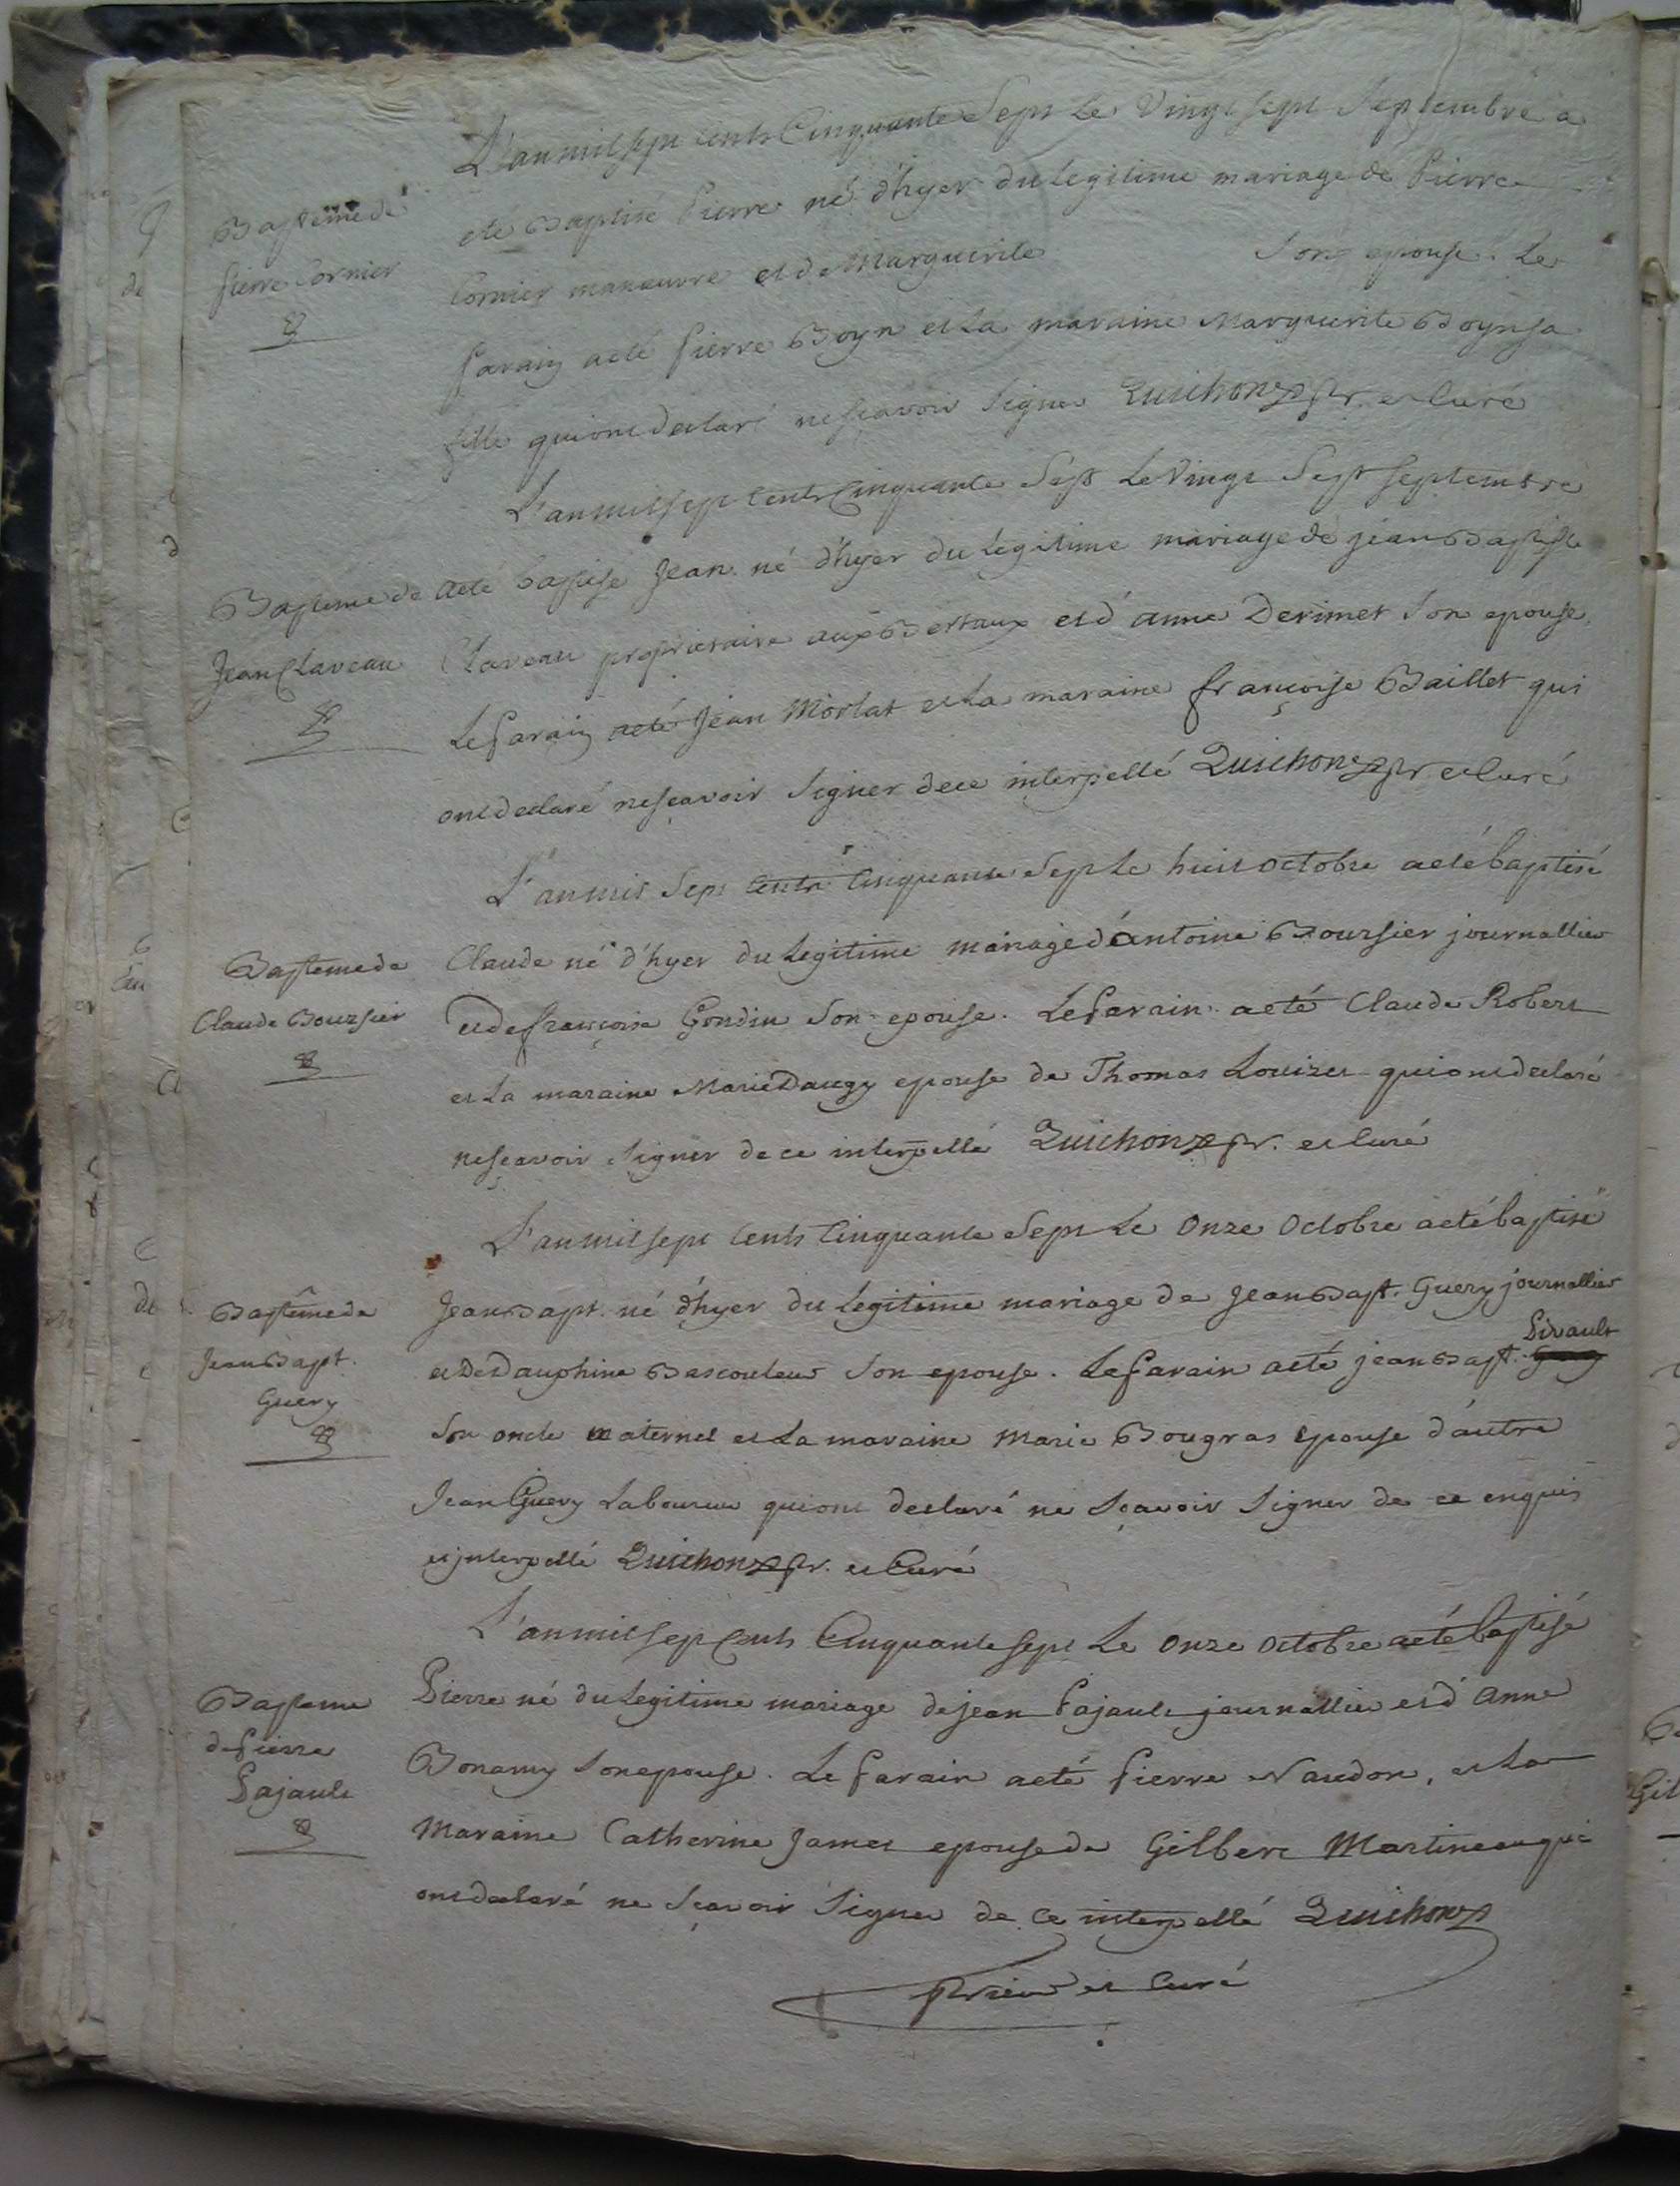 L'an mil sept cents Cinquante Sept Le Vingt sept Septembre a
Baptême de
Pierre Cornier
eté Baptisé Pierre né d'hyer du Legitime mariage de Pierre
Cornier manœuvre et de Marguerite Son epouse. Le
Parain aeté Pierre Boyn et La maraine Marguerite Boyn sa
fille qui ont declaré ne sçavoir Signer Quichon pr. et Curé
L'an mil sept cents Cinquante Sept Le Vingt Sept Septembre
Baptême de
Jean Claveau
aeté baptisé Jean né d'hyer du Legitime mariage de jean Baptiste
Claveau proprietaire aux Bertaux et d'anne Derimet Son epouse,
Le Parain aeté Jean Morlat et La maraine françoise Baillet qui
ont declaré ne sçavoir Signer de ce interpellé Quichon pr. et Curé
L'an mil Sept Cents Cinquante Sept Le huit octobre aeté baptisé
Baptême de
Claude Boursier
Claude né d'hyer du Legitime mariage d'antoine Boursier journallier
et de françoise Gondin Son epouse. Le Parain aeté Claude Robert
et La maraine Marie Daugy epouse de Thomas Louizet qui ont declaré
ne sçavoir Signer de ce interpellé Quichon pr. et Curé
L'an mil sept Cents Cinquante Sept Le Onze Octobre aeté baptisé
Baptême de
Jean Bapt.
Guery
Jean Bapt. né d'hyer du Legitime mariage de Jean Bapt. Guery journallier
et de Dauphine Bascouleur Son epouse. Le Parain aeté jean Bapt. Pirault
Son oncle maternel et La maraine Marie Bougras Epouse d'autre
Jean Guery Laboureur qui ont declaré ne Sçavoir Signer de ce enquis
et jnterpellé Quichon pr. et Curé
L'an mil sept Cents Cinquante sept Le Onze Octobre aeté baptisé
Bapteme
de Pierre
Pajault
Pierre né du Legitime mariage de jean Pajault journallier et d'Anne
Bonamy Son epouse. Le Parain aeté Pierre Naudon, et La
Maraine Catherine James epouse de Gilbert Martineau qui
ont declaré ne Sçavoir Signer de Ce interpellé Quichon
Prieur et Curé